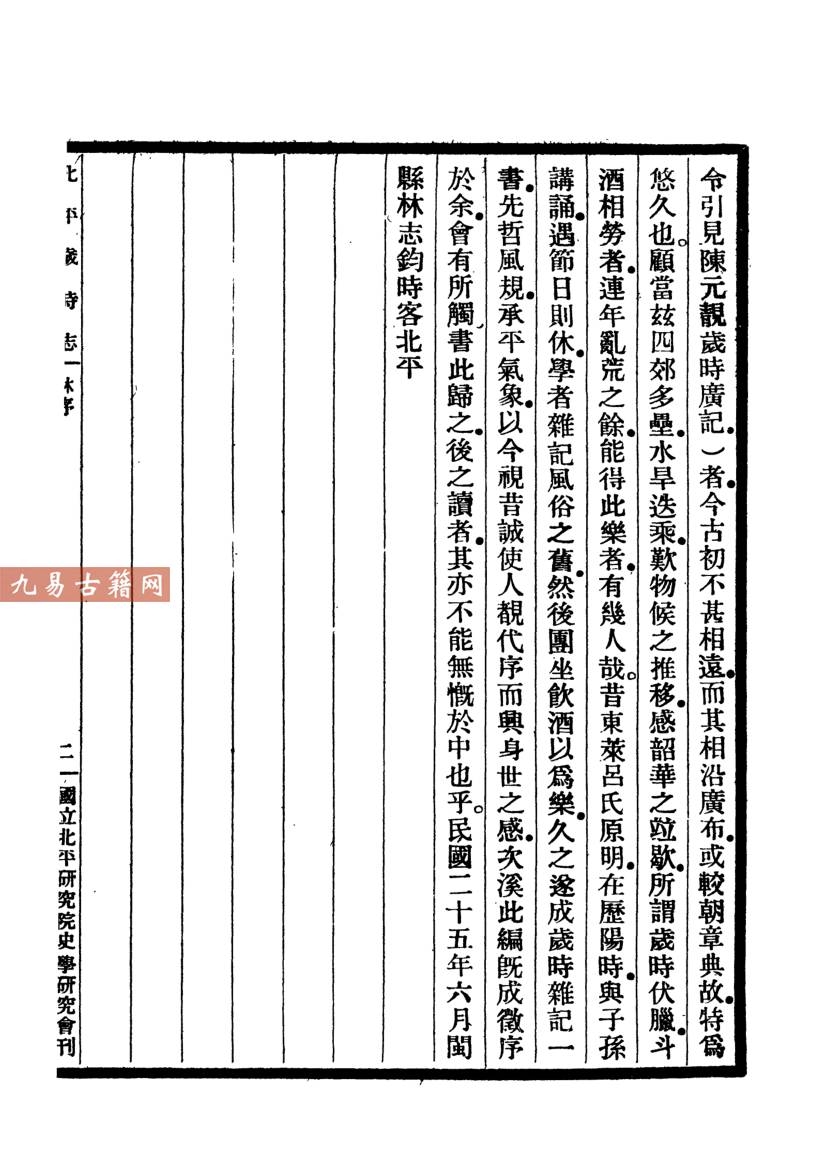 令引見陳元靚歲時廣記。）者。今古初不甚相遠。而其相沿廣布。或較朝章典故。特爲
悠久也。顧當茲四郊多壘。水旱迭乘。歎物候之推移。感韶華之竝歇。所謂歲時伏臘。斗
酒相勞者。連年亂荒之餘。能得此樂者。有幾人哉。昔東萊呂氏原明。在歷陽時。與子孫
講誦。遇節日則休。學者雜記風俗之舊。然後團坐飲酒以爲樂。久之遂成歲時雜記一
書。先哲風規。承平氣象。以今視昔誠使人覩代序而興身世之感。次溪此編旣成徵序
於余。會有所觸。書此歸之。後之讀者。其亦不能無慨於中也乎。民國二十五年六月閩
縣林志鈞時客北平
北平歲時志 林序
二 國立北平研究院史學研究會刊
九易古籍网